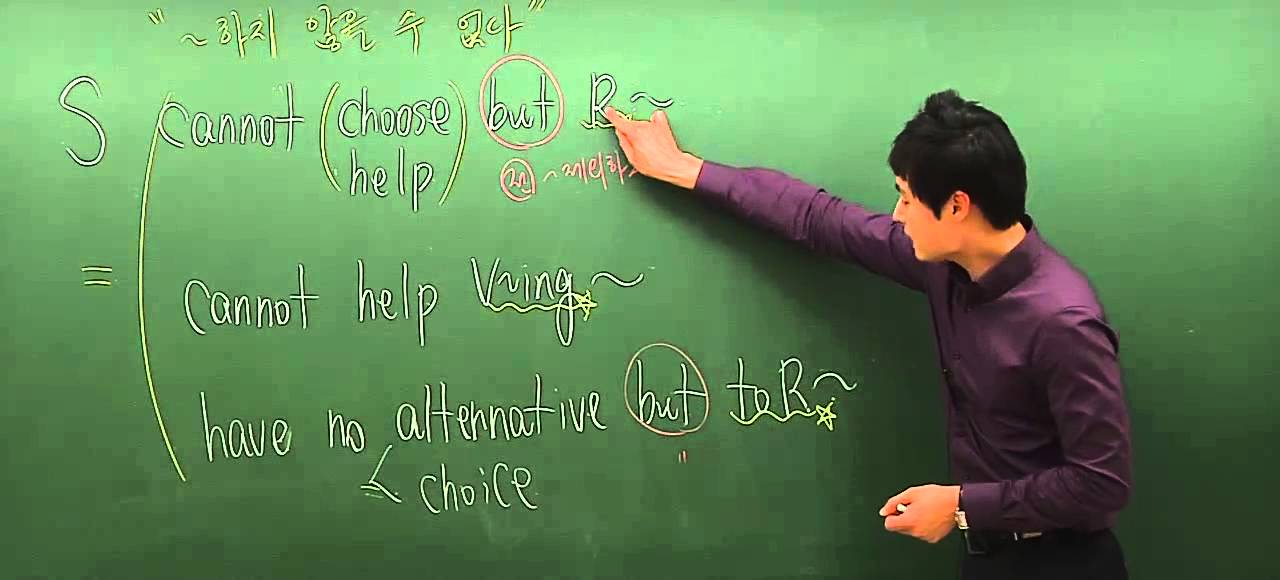 "~하지 않을 수 없다"
S cannot (choose but R~
help)
전 ~제외하
= cannot help V~ing~
have no alternative but to R~
choice "